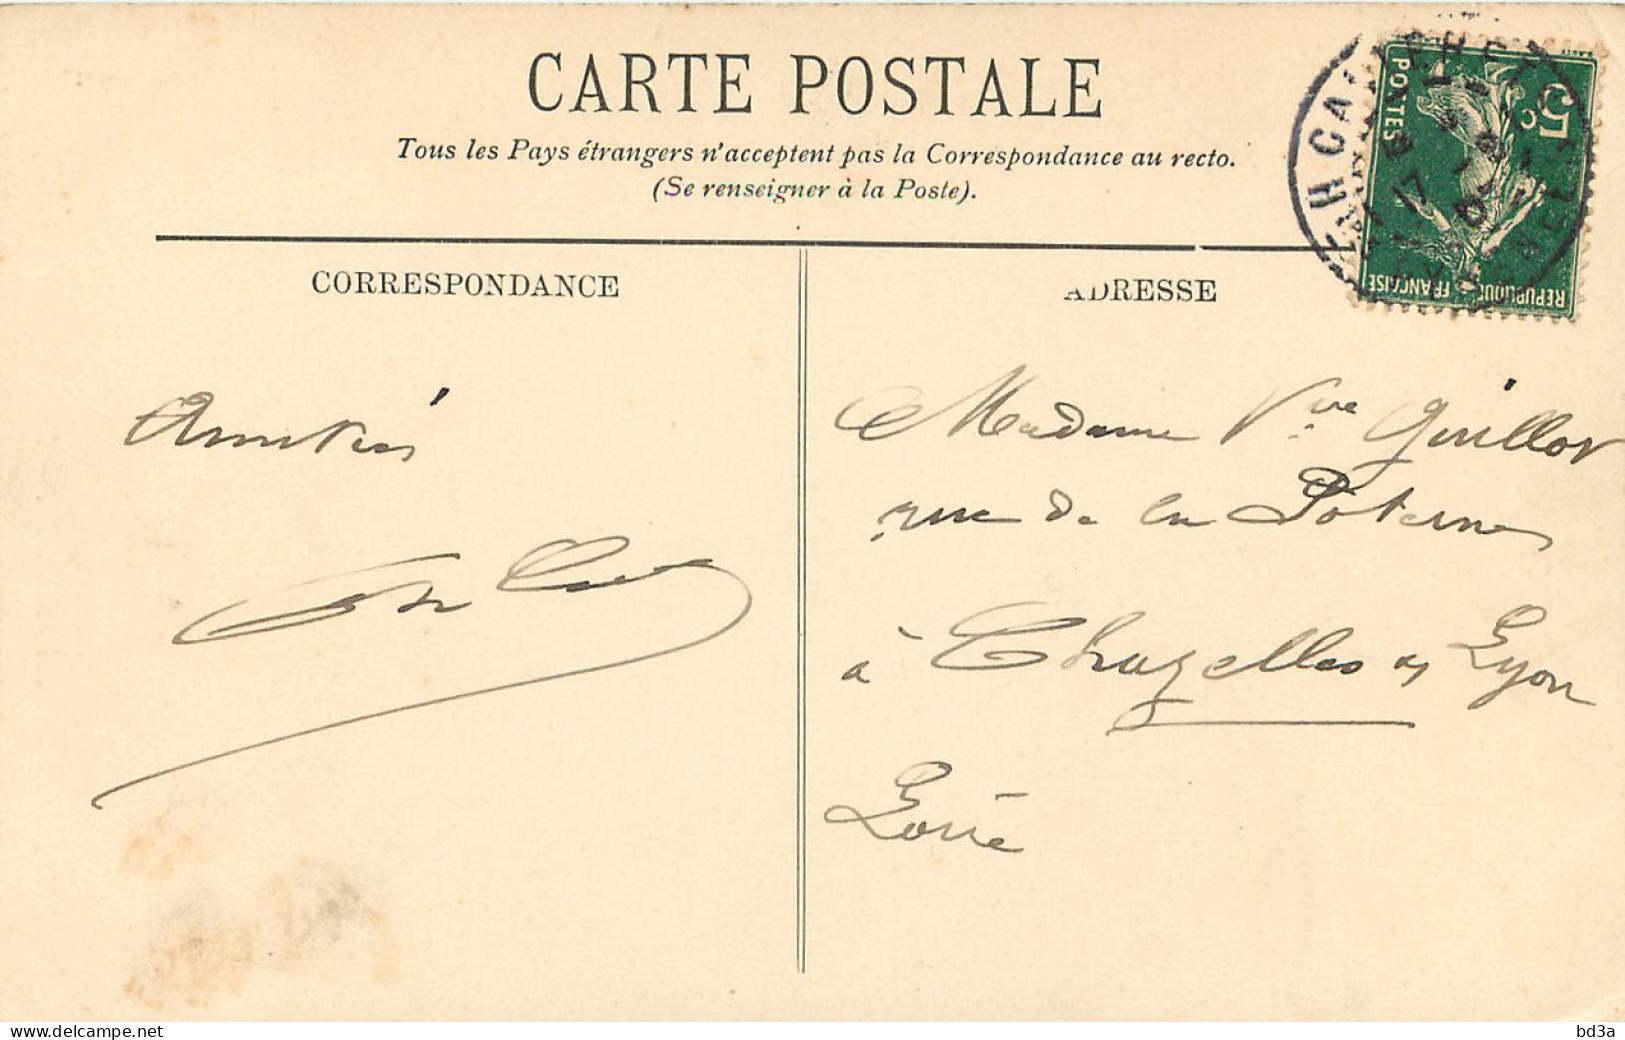 CARTE POSTALE
Tous les Pays étrangers n'acceptent pas la Correspondance au recto.
(Se renseigner à la Poste).
CORRESPONDANCE
ADRESSE
5c
POSTES
REPUBLIQUE FRANÇAISE
Amitiés
Madame Vve Guillot
rue de la Poterne
à Chazelles s/ Lyon
Loire
www.delcampe.net
bd3a